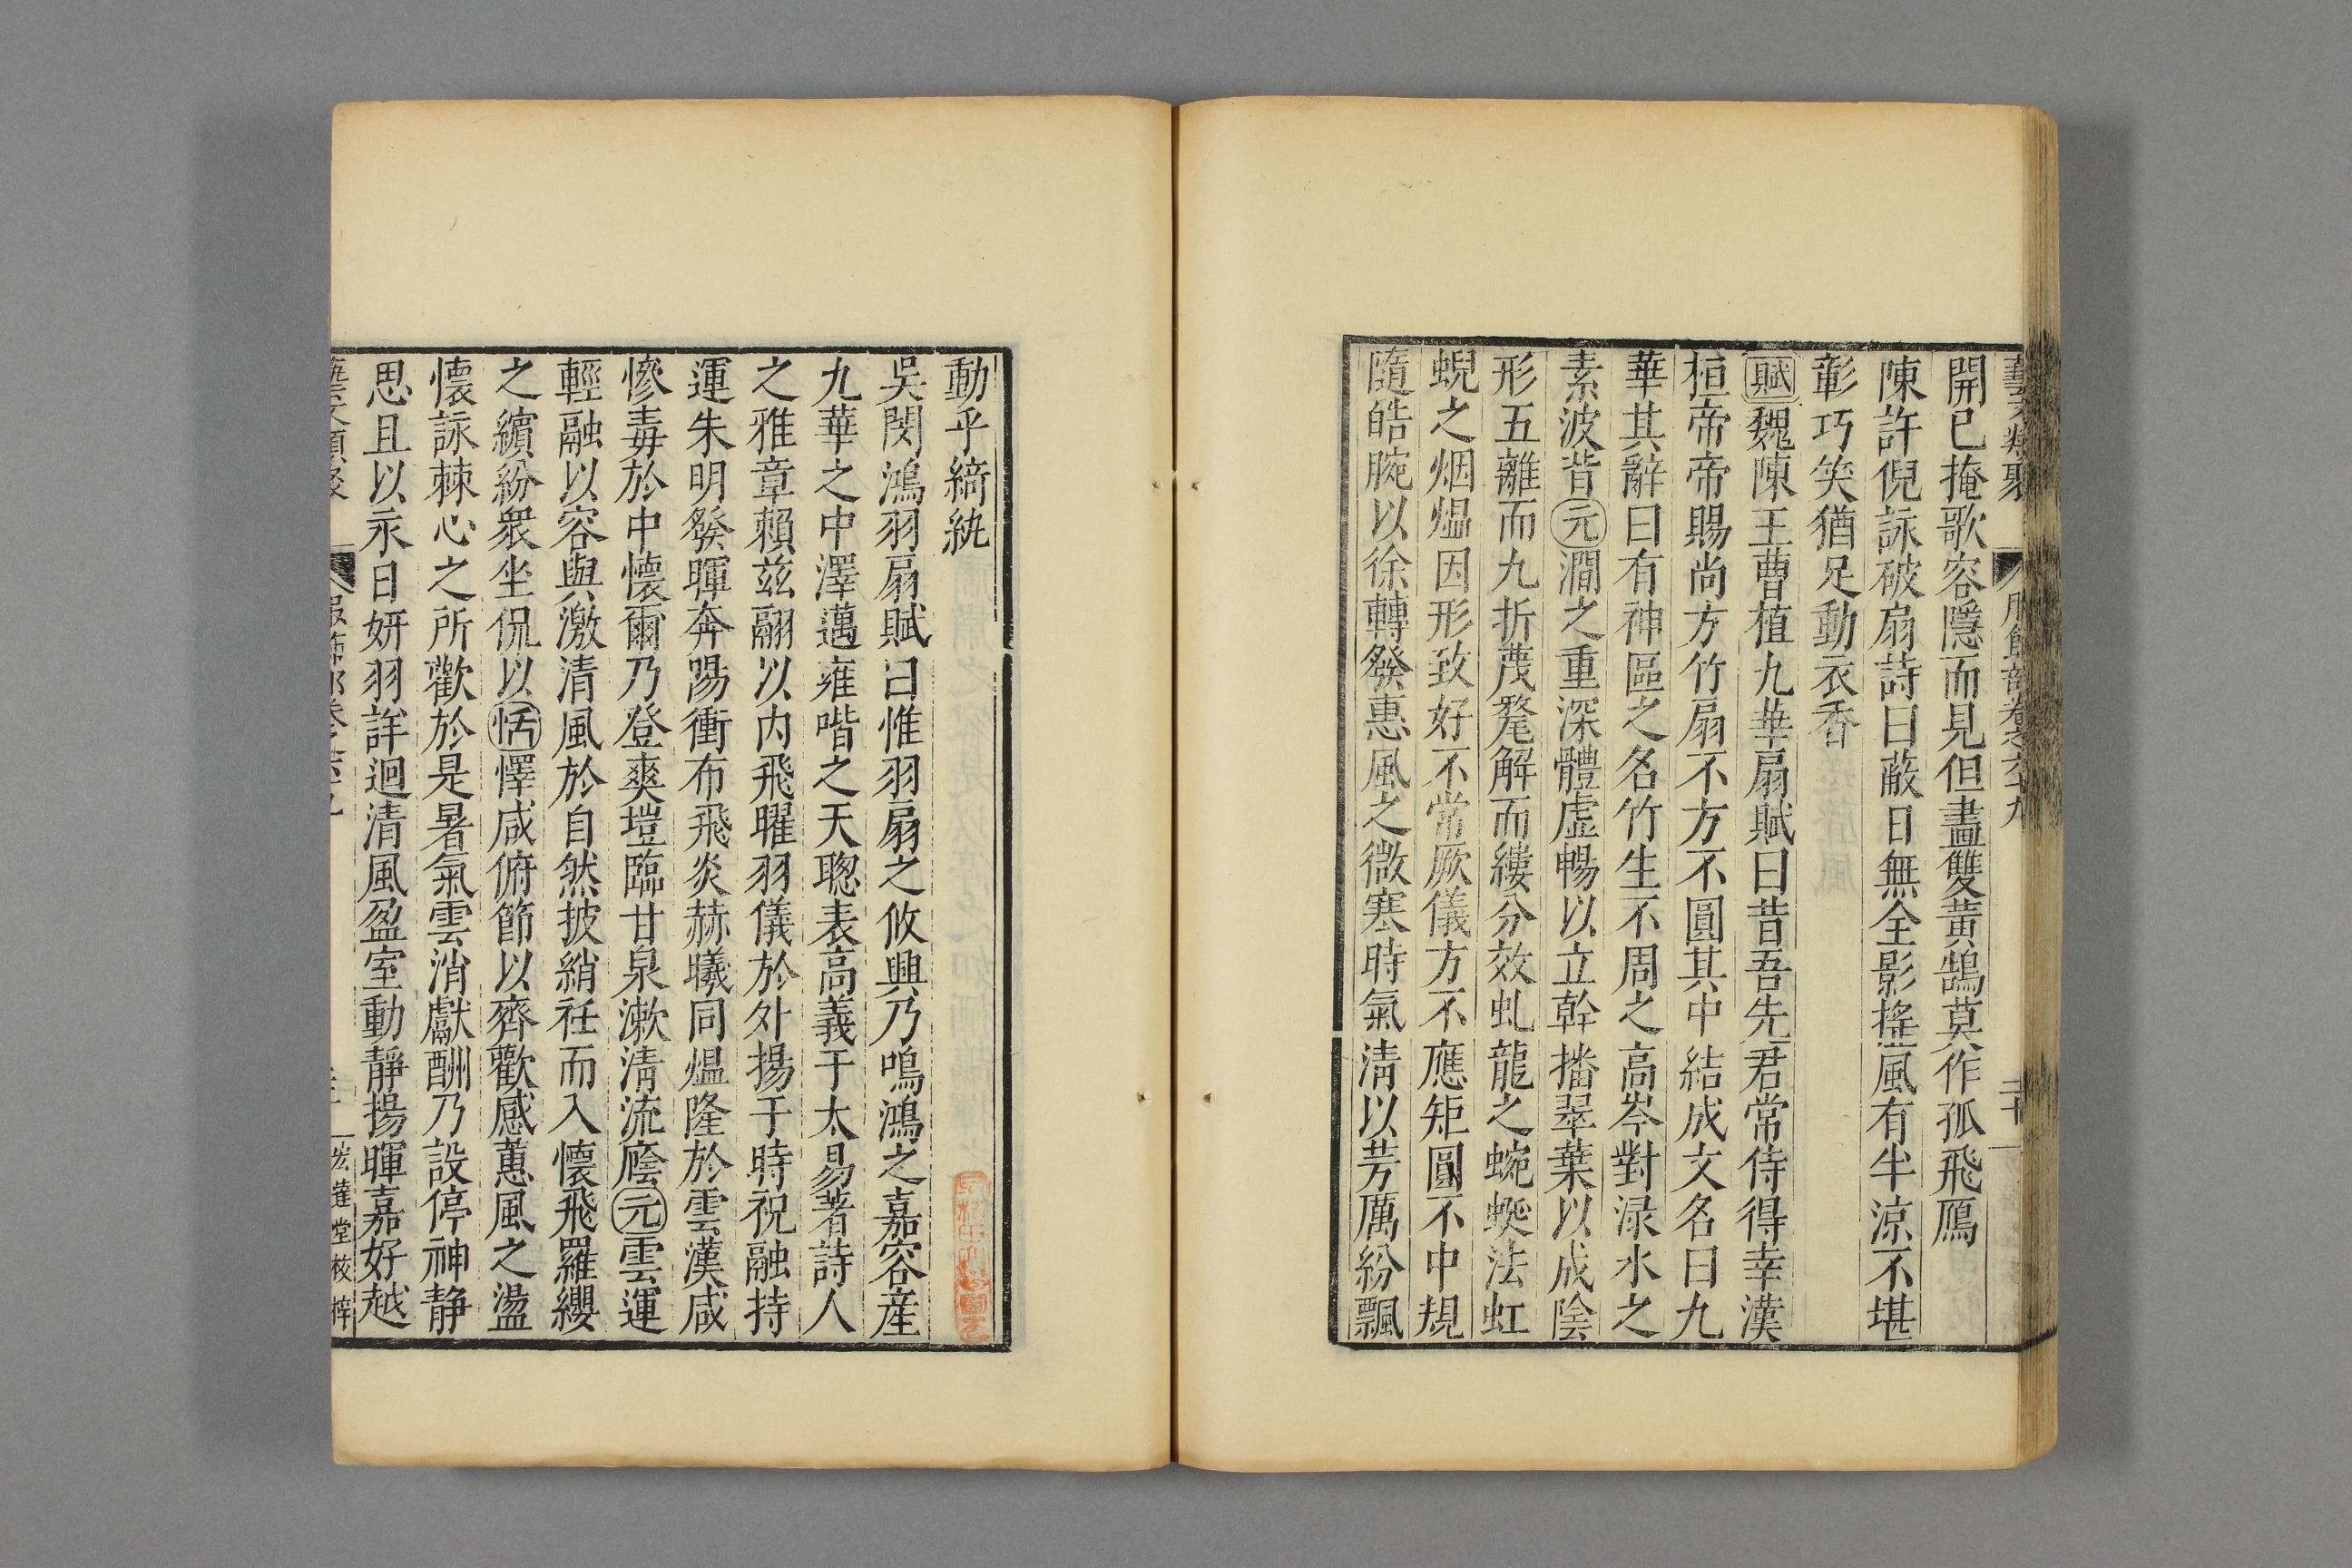 藝文類聚 服飾部卷之六十九 二十一
開已掩歌容隱而見但畫雙黃鵠莫作孤飛鴈
陳許倪詠破扇詩曰蔽日無全影搖風有半涼不堪
彰巧笑猶足動衣香
賦魏陳王曹植九華扇賦曰昔吾先君常侍得幸漢
桓帝帝賜尚方竹扇不方不圓其中結成文名曰九
華其辭曰有神區之名竹生不周之高岑對淥水之
素波昔元澗之重深體虛暢以立幹播翠葉以成陰
形五離而九折蔑氂解而縷分效虬龍之蜿蜒法虹
蜺之烟煴因形致好不常厥儀方不應矩圓不中規
隨皓腕以徐轉發惠風之微寒時氣清以芳厲紛飄
動乎綺紈
吳閔鴻羽扇賦曰惟羽扇之攸興乃鳴鴻之嘉容産
九華之中澤邁雍喈之天聰表高義于太易著詩人
之雅章賴兹翮以内飛曜羽儀於外揚于時祝融持
運朱明發暉奔陽衝布飛炎赫曦同煴隆於雲漢咸
慘毒於中懷爾乃登爽塏臨甘泉漱清流廕元雲運
輕融以容與激清風於自然披綃衽而入懷飛羅纓
之繽紛衆坐侃以恬懌咸俯節以齊歡感蕙風之盪
懷詠棘心之所歡於是暑氣雲消獻酬乃設停神静
思且以永日妍羽詳迴清風盈室動靜揚暉嘉好越
藝文類聚 服飾部卷之六十九 宏達堂校梓